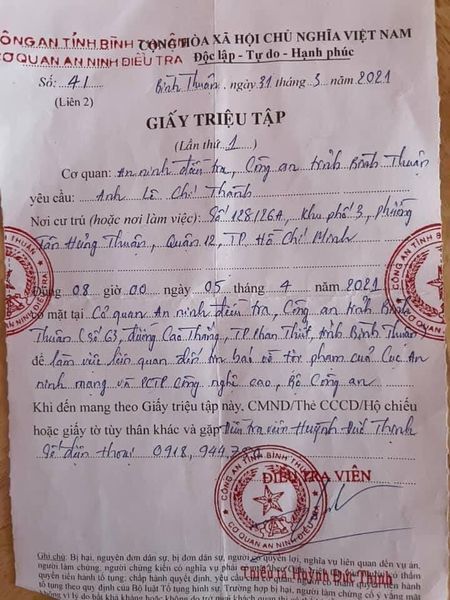 CÔNG AN TỈNH BÌNH THUẬN CỘNG HÒA XÃ HỘI CHỦ NGHĨA VIỆT NAM
CƠ QUAN AN NINH ĐIỀU TRA Độc lập - Tự do - Hạnh phúc
Số: 41 Bình Thuận, ngày 31 tháng 3 năm 2021
(Liên 2)
GIẤY TRIỆU TẬP
(Lần thứ 1)
Cơ quan: An ninh điều tra, Công an tỉnh Bình Thuận
yêu cầu: Anh Lê Chí Thành
Nơi cư trú (hoặc nơi làm việc): Số 128/26A, khu phố 3, phường
Tân Hưng Thuận, Quận 12, TP. Hồ Chí Minh
Đúng 08 giờ 00 ngày 05 tháng 4 năm 2021
có mặt tại Cơ quan An ninh điều tra, Công an tỉnh Bình
Thuận (số 63, đường Cao Thắng, TP. Phan Thiết, tỉnh Bình Thuận)
để làm việc liên quan đến tin báo về tội phạm của Cục An
ninh mạng và PCTP Công nghệ cao, Bộ Công an
Khi đến mang theo Giấy triệu tập này, CMND/Thẻ CCCD/Hộ chiếu
hoặc giấy tờ tùy thân khác và gặp Điều tra viên Huỳnh Đức Thịnh
Số điện thoại 0918.944.
ĐIỀU TRA VIÊN
CÔNG AN TỈNH BÌNH THUẬN
CƠ QUAN AN NINH ĐIỀU TRA
Thiếu tá Huỳnh Đức Thịnh
Ghi chú: Bị hại, nguyên đơn dân sự, bị đơn dân sự, người có quyền lợi, nghĩa vụ liên quan đến vụ án,
người làm chứng, người chứng kiến có nghĩa vụ phải
thẩm quyền tiến hành tố tụng; chấp hành quyết định, yêu cầu
tố tụng theo quy định của Bộ luật Tố tụng hình sự. Trường hợp bị hại, người làm chứng cố ý vắng mặt